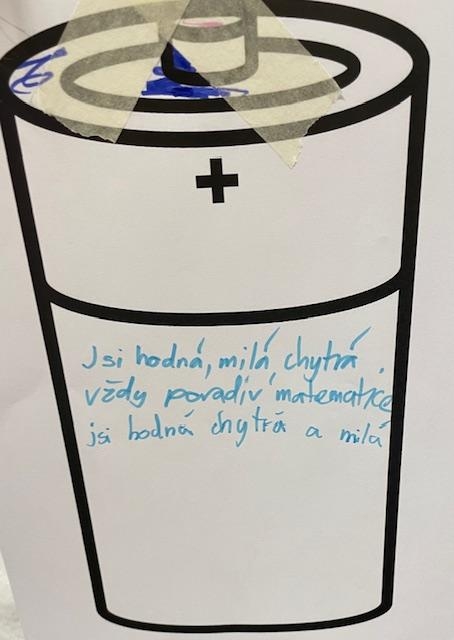 +
Jsi hodná, milá, chytrá.
vždy poradív matematice
jsi hodná chytrá a milá